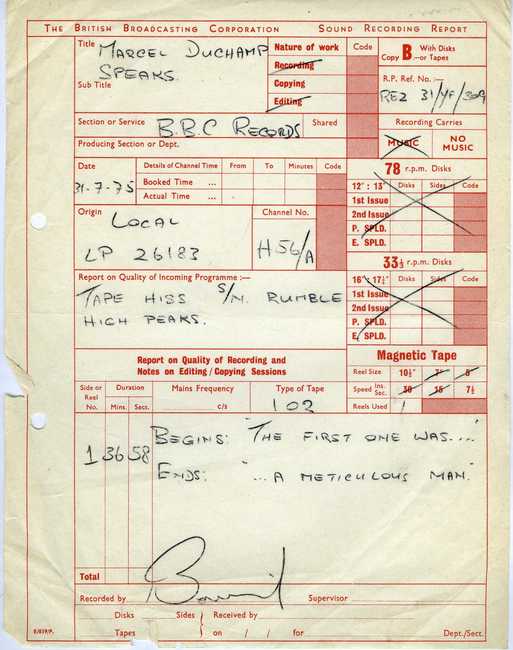 THE BRITISH BROADCASTING CORPORATION SOUND RECORDING REPORT
Title MARCEL DUCHAMP SPEAKS.
Sub Title
Nature of work Code
Recording
Copying
Editing
Copy B With Disks or Tapes
R.P. Ref. No. :—
REZ 31/YF/309
Section or Service B.B.C RECORDS Shared
Producing Section or Dept.
Recording Carries
MUSIC NO MUSIC
Date 31-7-75
Details of Channel Time From To Minutes Code
Booked Time ...
Actual Time ...
78 r.p.m. Disks
12" : 13" Disks Sides Code
1st Issue
2nd Issue
P. SPLD.
E. SPLD.
Origin LOCAL
LP 26183
Channel No.
H56/A
33⅓ r.p.m. Disks
16" : 17½" Disks Sides Code
1st Issue
2nd Issue
P. SPLD.
E. SPLD.
Report on Quality of Incoming Programme :—
TAPE HISS S/N. RUMBLE
HIGH PEAKS.
Report on Quality of Recording and
Notes on Editing/Copying Sessions
Magnetic Tape
Reel Size 10½" 7" 5"
Speed Ins. Sec. 30 15 7½
Reels Used 1
Side or Reel No. Duration Mins. Secs. Mains Frequency c/s Type of Tape 102
1 36 58 BEGINS: "THE FIRST ONE WAS...."
ENDS: "... A METICULOUS MAN."
Total
Recorded by Supervisor
Disks Sides Received by
Tapes on / / for Dept./Sect.